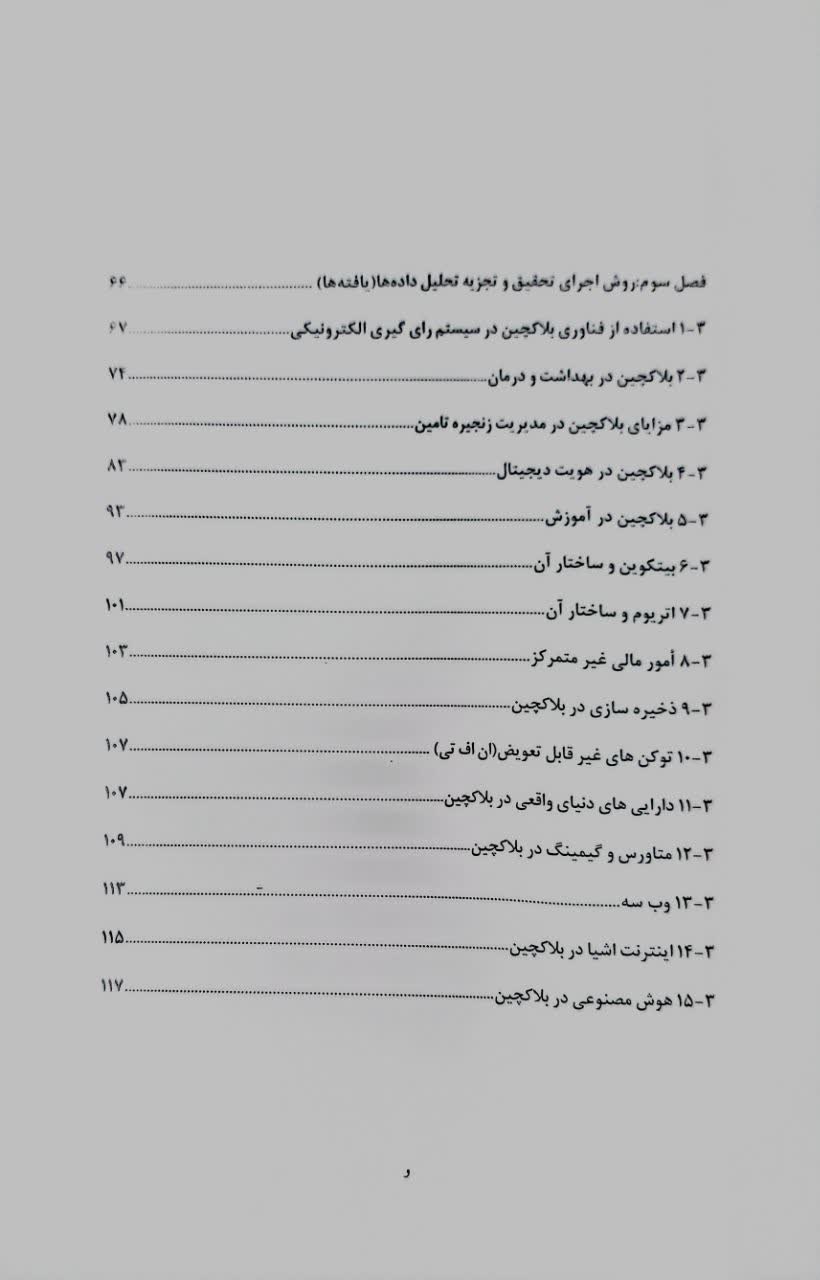 فصل سوم:روش اجرای تحقیق و تجزیه تحلیل داده‌ها(یافته‌ها) ........ ۶۶
۳-۱ استفاده از فناوری بلاکچین در سیستم رای گیری الکترونیکی........ ۶۷
۳-۲ بلاکچین در بهداشت و درمان........ ۷۴
۳-۳ مزایای بلاکچین در مدیریت زنجیره تامین........ ۷۸
۳-۴ بلاکچین در هویت دیجیتال........ ۸۳
۳-۵ بلاکچین در آموزش........ ۹۳
۳-۶ بیتکوین و ساختار آن........ ۹۷
۳-۷ اتریوم و ساختار آن........ ۱۰۱
۳-۸ أمور مالی غیر متمرکز........ ۱۰۳
۳-۹ ذخیره سازی در بلاکچین........ ۱۰۵
۳-۱۰ توکن های غیر قابل تعویض(ان اف تی) ........ ۱۰۷
۳-۱۱ دارایی های دنیای واقعی در بلاکچین........ ۱۰۷
۳-۱۲ متاورس و گیمینگ در بلاکچین........ ۱۰۹
۳-۱۳ وب سه........ ۱۱۳
۳-۱۴ اینترنت اشیا در بلاکچین........ ۱۱۵
۳-۱۵ هوش مصنوعی در بلاکچین........ ۱۱۷
ر